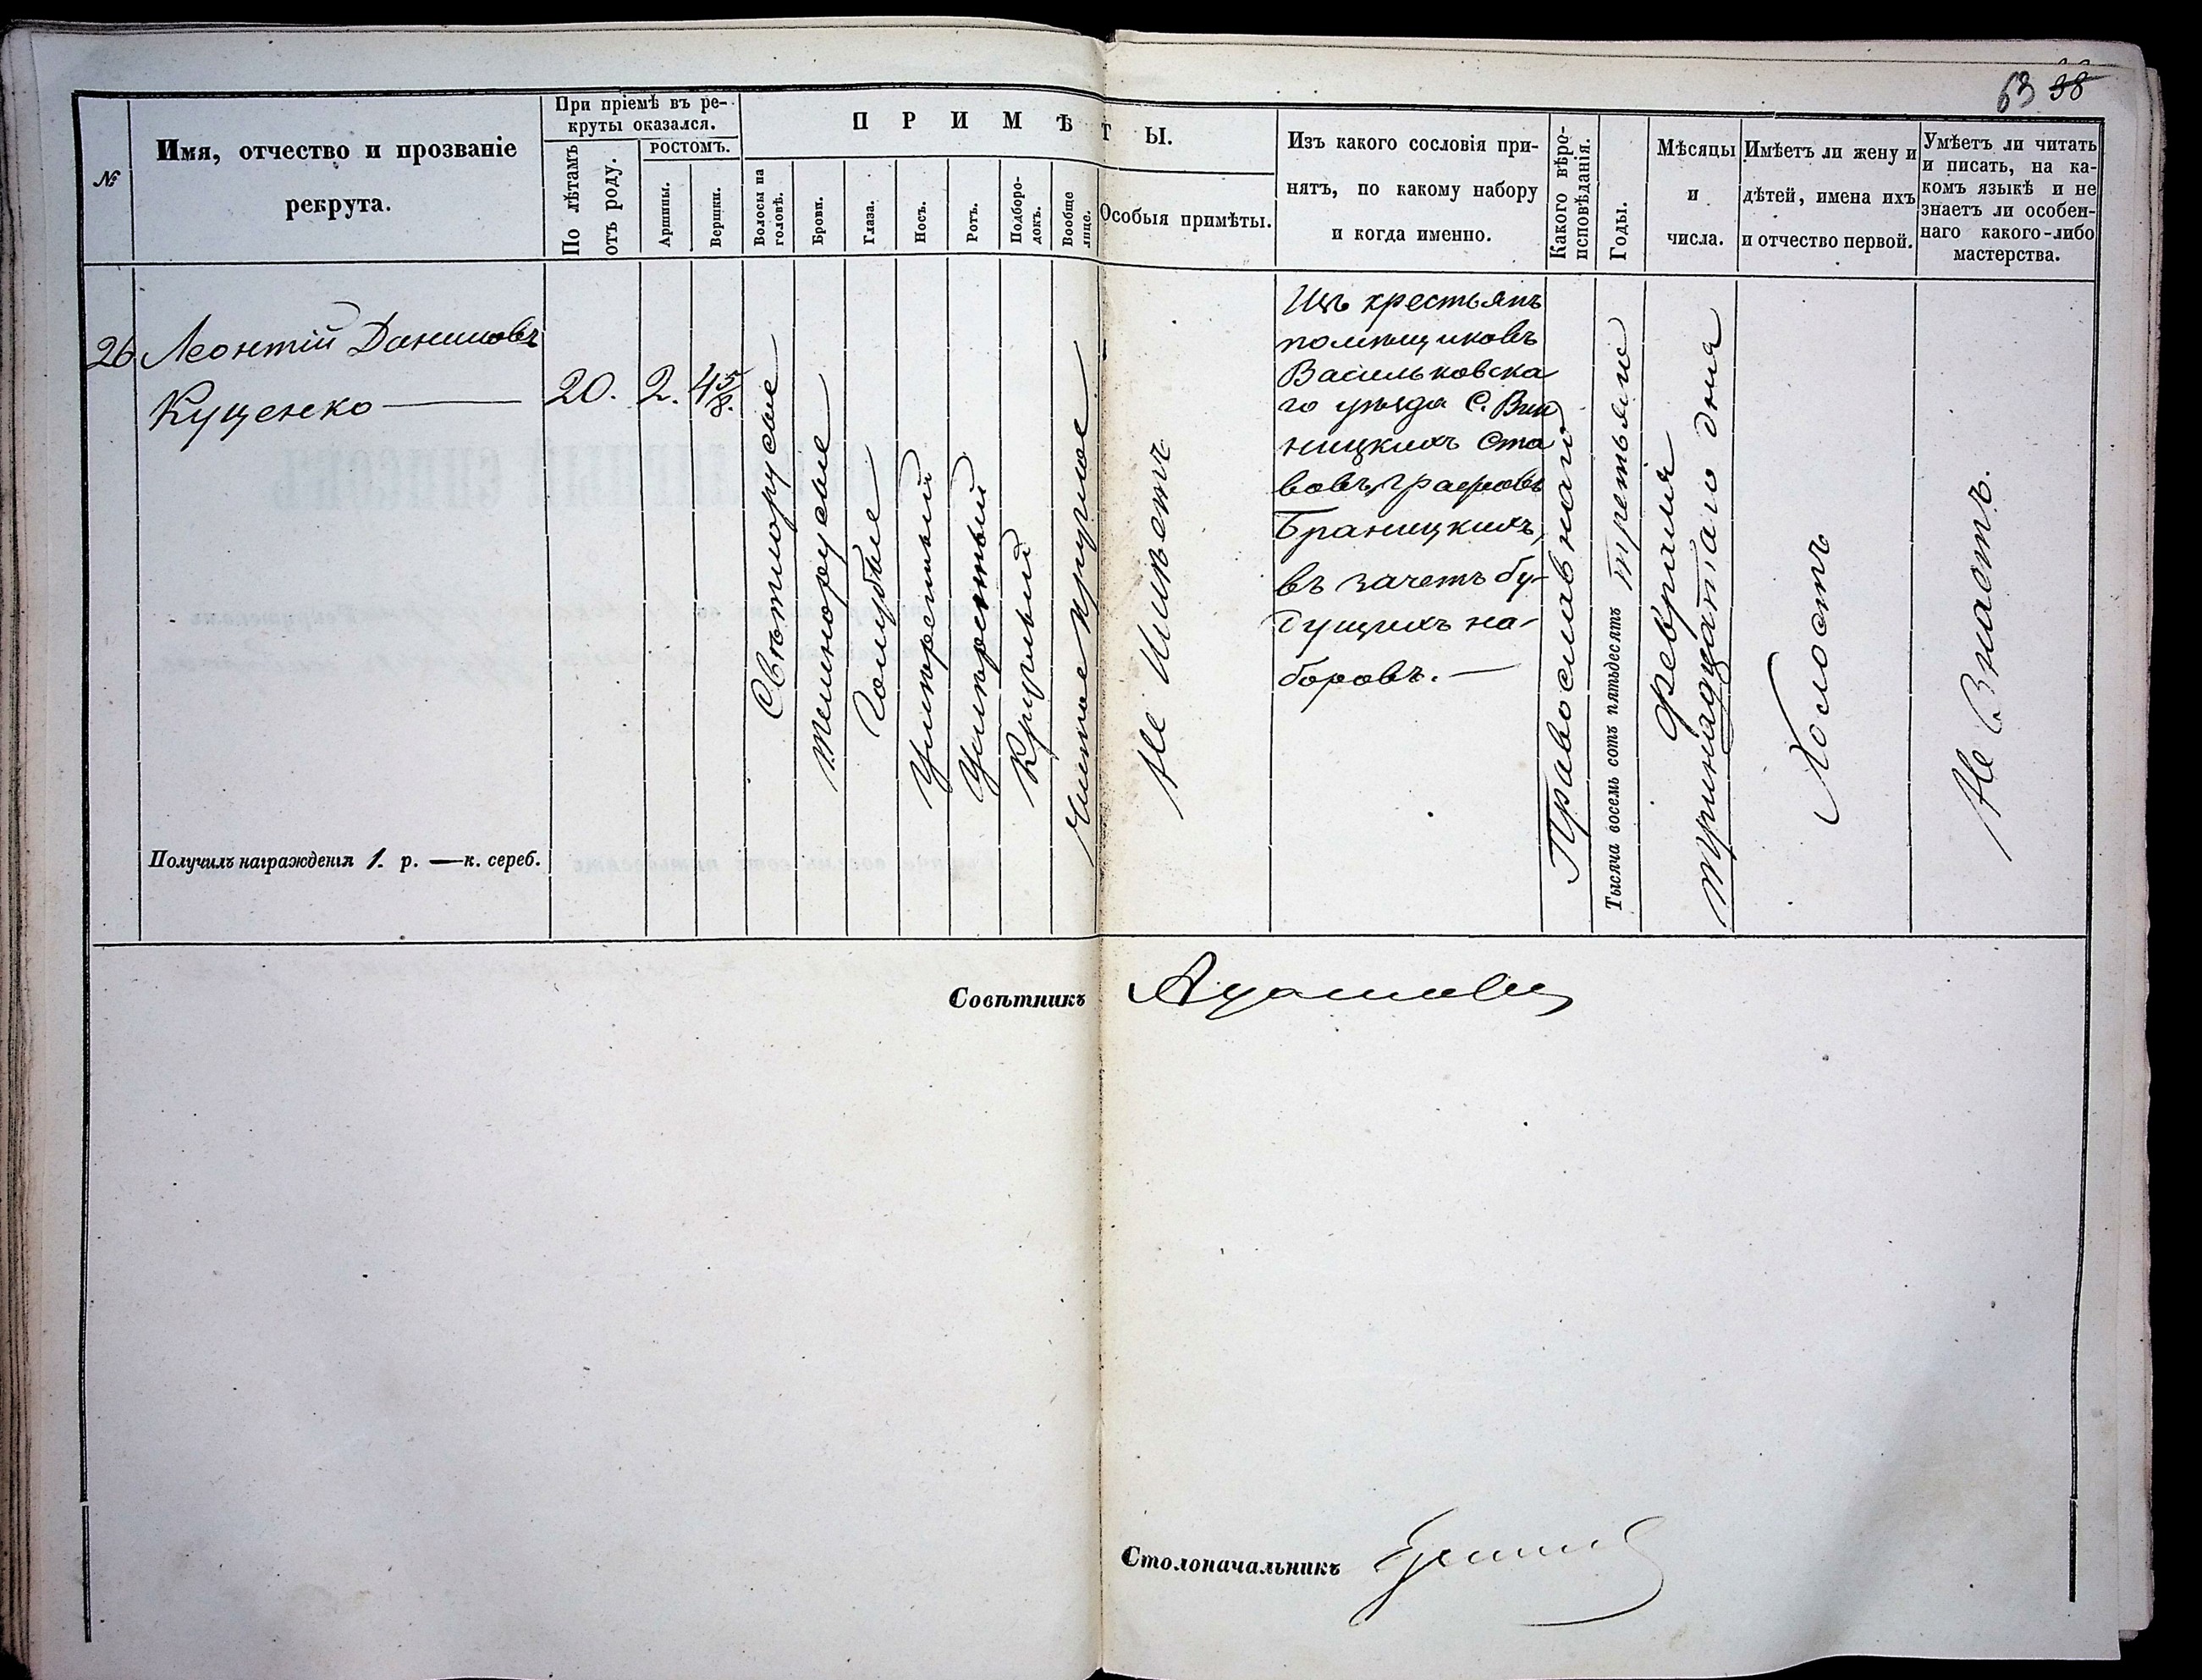 63 38
№
Имя, отчество и прозваніе
рекрута.
При пріемѣ въ ре-
круты оказался.
По лѣтамъ
отъ роду.
РОСТОМЪ.
Аршины.
Вершки.
ПРИМѢТЫ.
Волосы на
головѣ.
Брови.
Глаза.
Носъ.
Ротъ.
Подборо-
докъ.
Вообще
лице.
Особыя примѣты.
Изъ какого сословія при-
нятъ, по какому набору
и когда именно.
Какого вѣро-
исповѣданія.
Годы.
Мѣсяцы
и
числа.
Имѣетъ ли жену и
дѣтей, имена ихъ
и отчество первой.
Умѣетъ ли читать
и писать, на ка-
комъ языкѣ и не
знаетъ ли особен-
наго какого-либо
мастерства.
26
Леонтій Даниловъ
Куценко
Получилъ награжденія 1. р. — к. сереб.
20.
2.
4 5/8.
Свѣтлорусые
Темнорусые
Голубые
Умѣренный
Умѣренный
Круглый
Чистое круглое
Не Имѣетъ
Изъ крестьянъ
помѣщиковъ
Васильковска
го уѣзда С. Вин
ницкихъ Ста
вовъ, Графовъ
Браницкихъ,
въ зачетъ бу-
дущихъ на-
боровъ. —
Православнаго
Тысяча восемь сотъ пятьдесятъ третьяго
Февраля
тринадцатаго дня
Холостъ
Не Знаетъ.
Совѣтникъ
Столоначальникъ